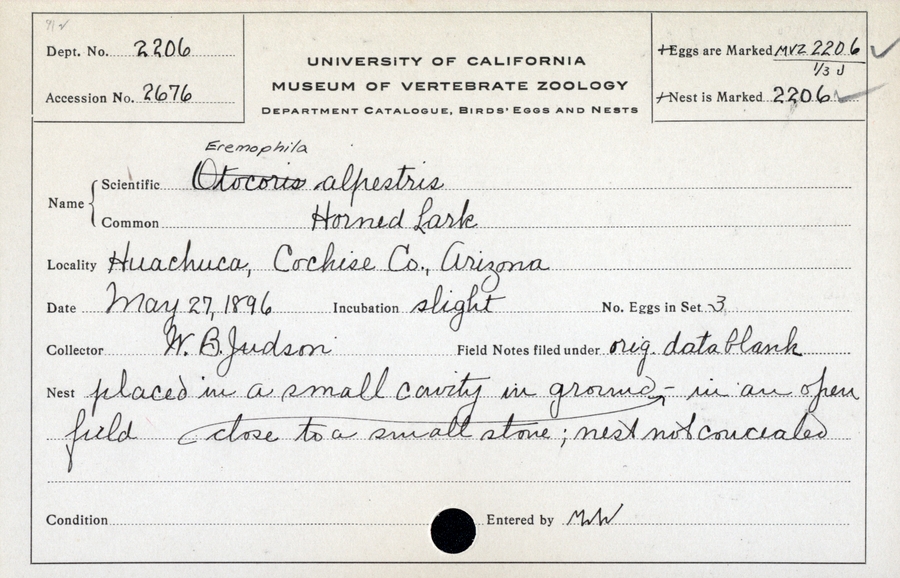 Dept. No. 2206
Accession No. 2676
UNIVERSITY OF CALIFORNIA
MUSEUM OF VERTEBRATE ZOOLOGY
DEPARTMENT CATALOGUE, BIRDS' EGGS AND NESTS
Eggs are Marked MVZ 2206
1/3 J
Nest is Marked 2206
Eremophila
Name
Scientific Otocoris alpestris
Common Horned Lark
Locality Huachuca, Cochise Co., Arizona
Date May 27, 1896 Incubation slight No. Eggs in Set 3
Collector W. B. Judson Field Notes filed under orig. data blank
Nest placed in a small cavity in ground - in an open
field close to a small stone; nest not concealed
Condition Entered by